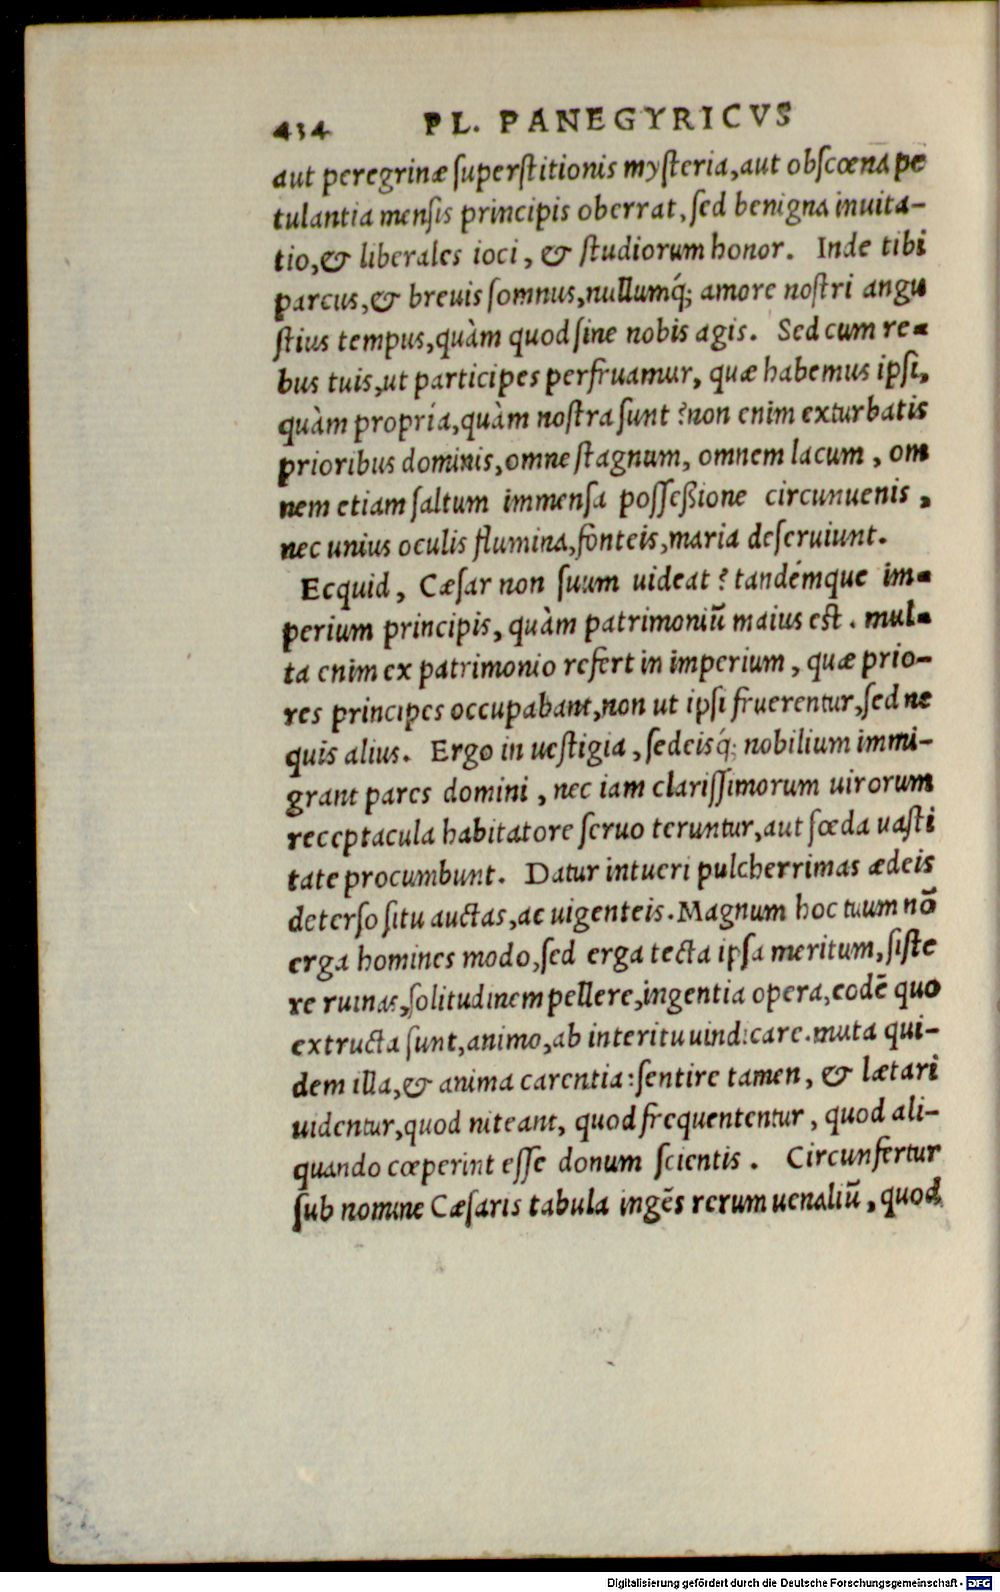 434 PL. PANEGYRICVS
aut peregrinæ ſuperſtitionis myſteria, aut obſcœna pe
tulantia menſis principis oberrat, ſed benigna inuita-
tio, & liberales ioci, & ſtudiorum honor. Inde tibi
parcus, & breuis ſomnus, nullumq́; amore noſtri angu
ſtius tempus, quàm quod ſine nobis agis. Sed cum re-
bus tuis, ut participes perfruamur, quæ habemus ipſi,
quàm propria, quàm noſtra ſunt? non enim exturbatis
prioribus dominis, omne ſtagnum, omnem lacum, om
nem etiam ſaltum immenſa poſſeßione circunuenis,
nec unius oculis flumina, fonteis, maria deſeruiunt.
Ecquid, Cæſar non ſuum uideat? tandémque im-
perium principis, quàm patrimoniū maius eſt. mul-
ta enim ex patrimonio refert in imperium, quæ prio-
res principes occupabant, non ut ipſi fruerentur, ſed ne
quis alius. Ergo in ueſtigia, ſedeisq́; nobilium immi-
grant pares domini, nec iam clariſſimorum uirorum
receptacula habitatore ſeruo teruntur, aut fœda uaſti
tate procumbunt. Datur intueri pulcherrimas ædeis
deterſo ſitu auctas, ac uigenteis. Magnum hoc tuum nō
erga homines modo, ſed erga tecta ipſa meritum, ſiſte
re ruinas, ſolitudinem pellere, ingentia opera, eodē quo
extructa ſunt, animo, ab interitu uindicare. muta qui-
dem illa, & anima carentia: ſentire tamen, & lætari
uidentur, quod niteant, quod frequententur, quod ali-
quando cœperint eſſe donum ſcientis. Circunfertur
ſub nomine Cæſaris tabula ingēs rerum uenaliū, quod
Digitalisierung gefördert durch die Deutsche Forschungsgemeinschaft - DFG